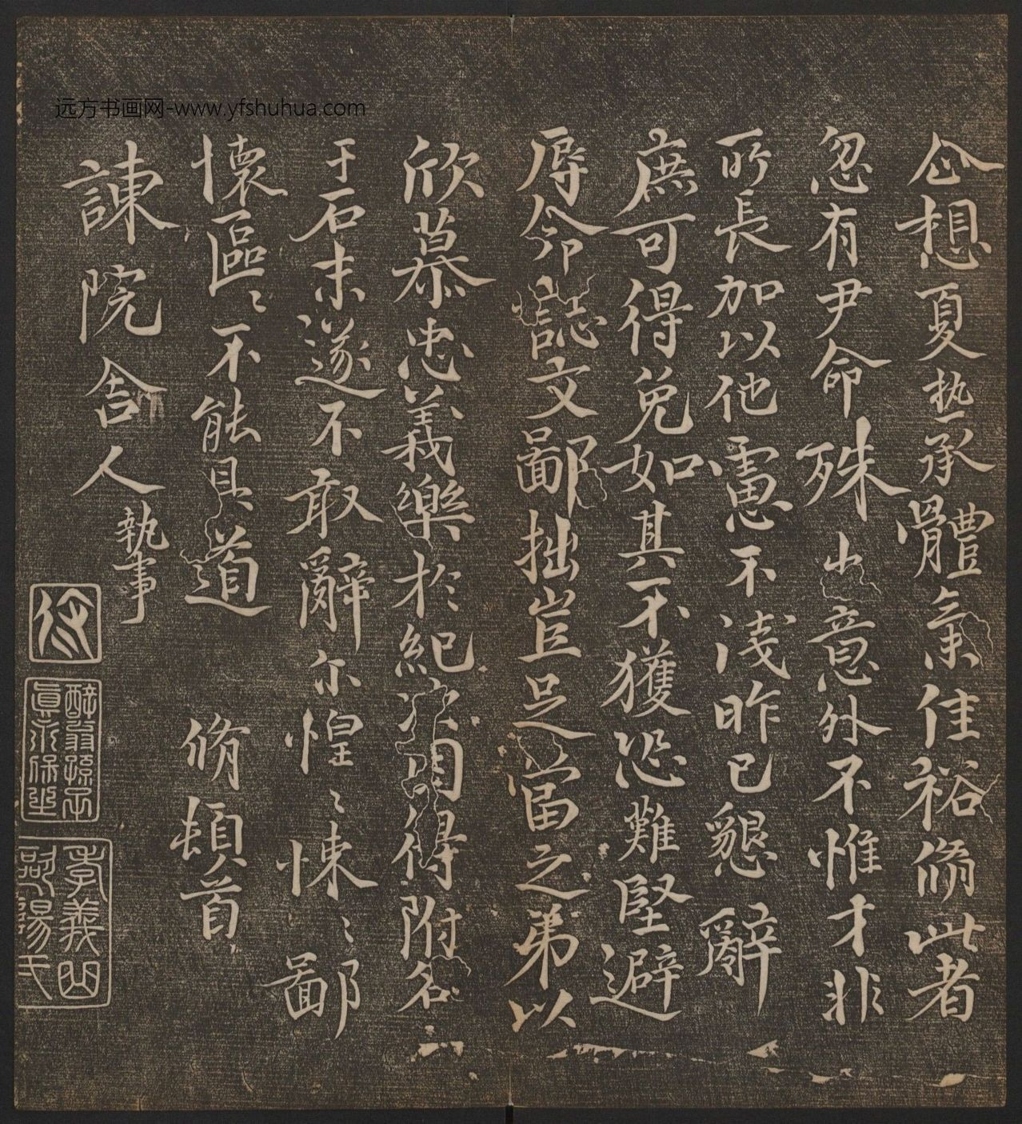 远方书画网-www.yfshuhua.com
企想夏热承體氣佳裕脩此者
忽有尹命殊出意外不惟才非
所長加以他慮不淺昨已懇辭
庶可得免如其不獲恐難堅避
辱命誌文鄙拙豈足當之弟以
欣慕忠義樂於紀次因得附名
于石未遂不敢辭尔惶〻悚〻鄙
懷區〻不能具道
脩頓首
諫院舍人執事
醉翁孫子
真永保
李義山
歐陽氏